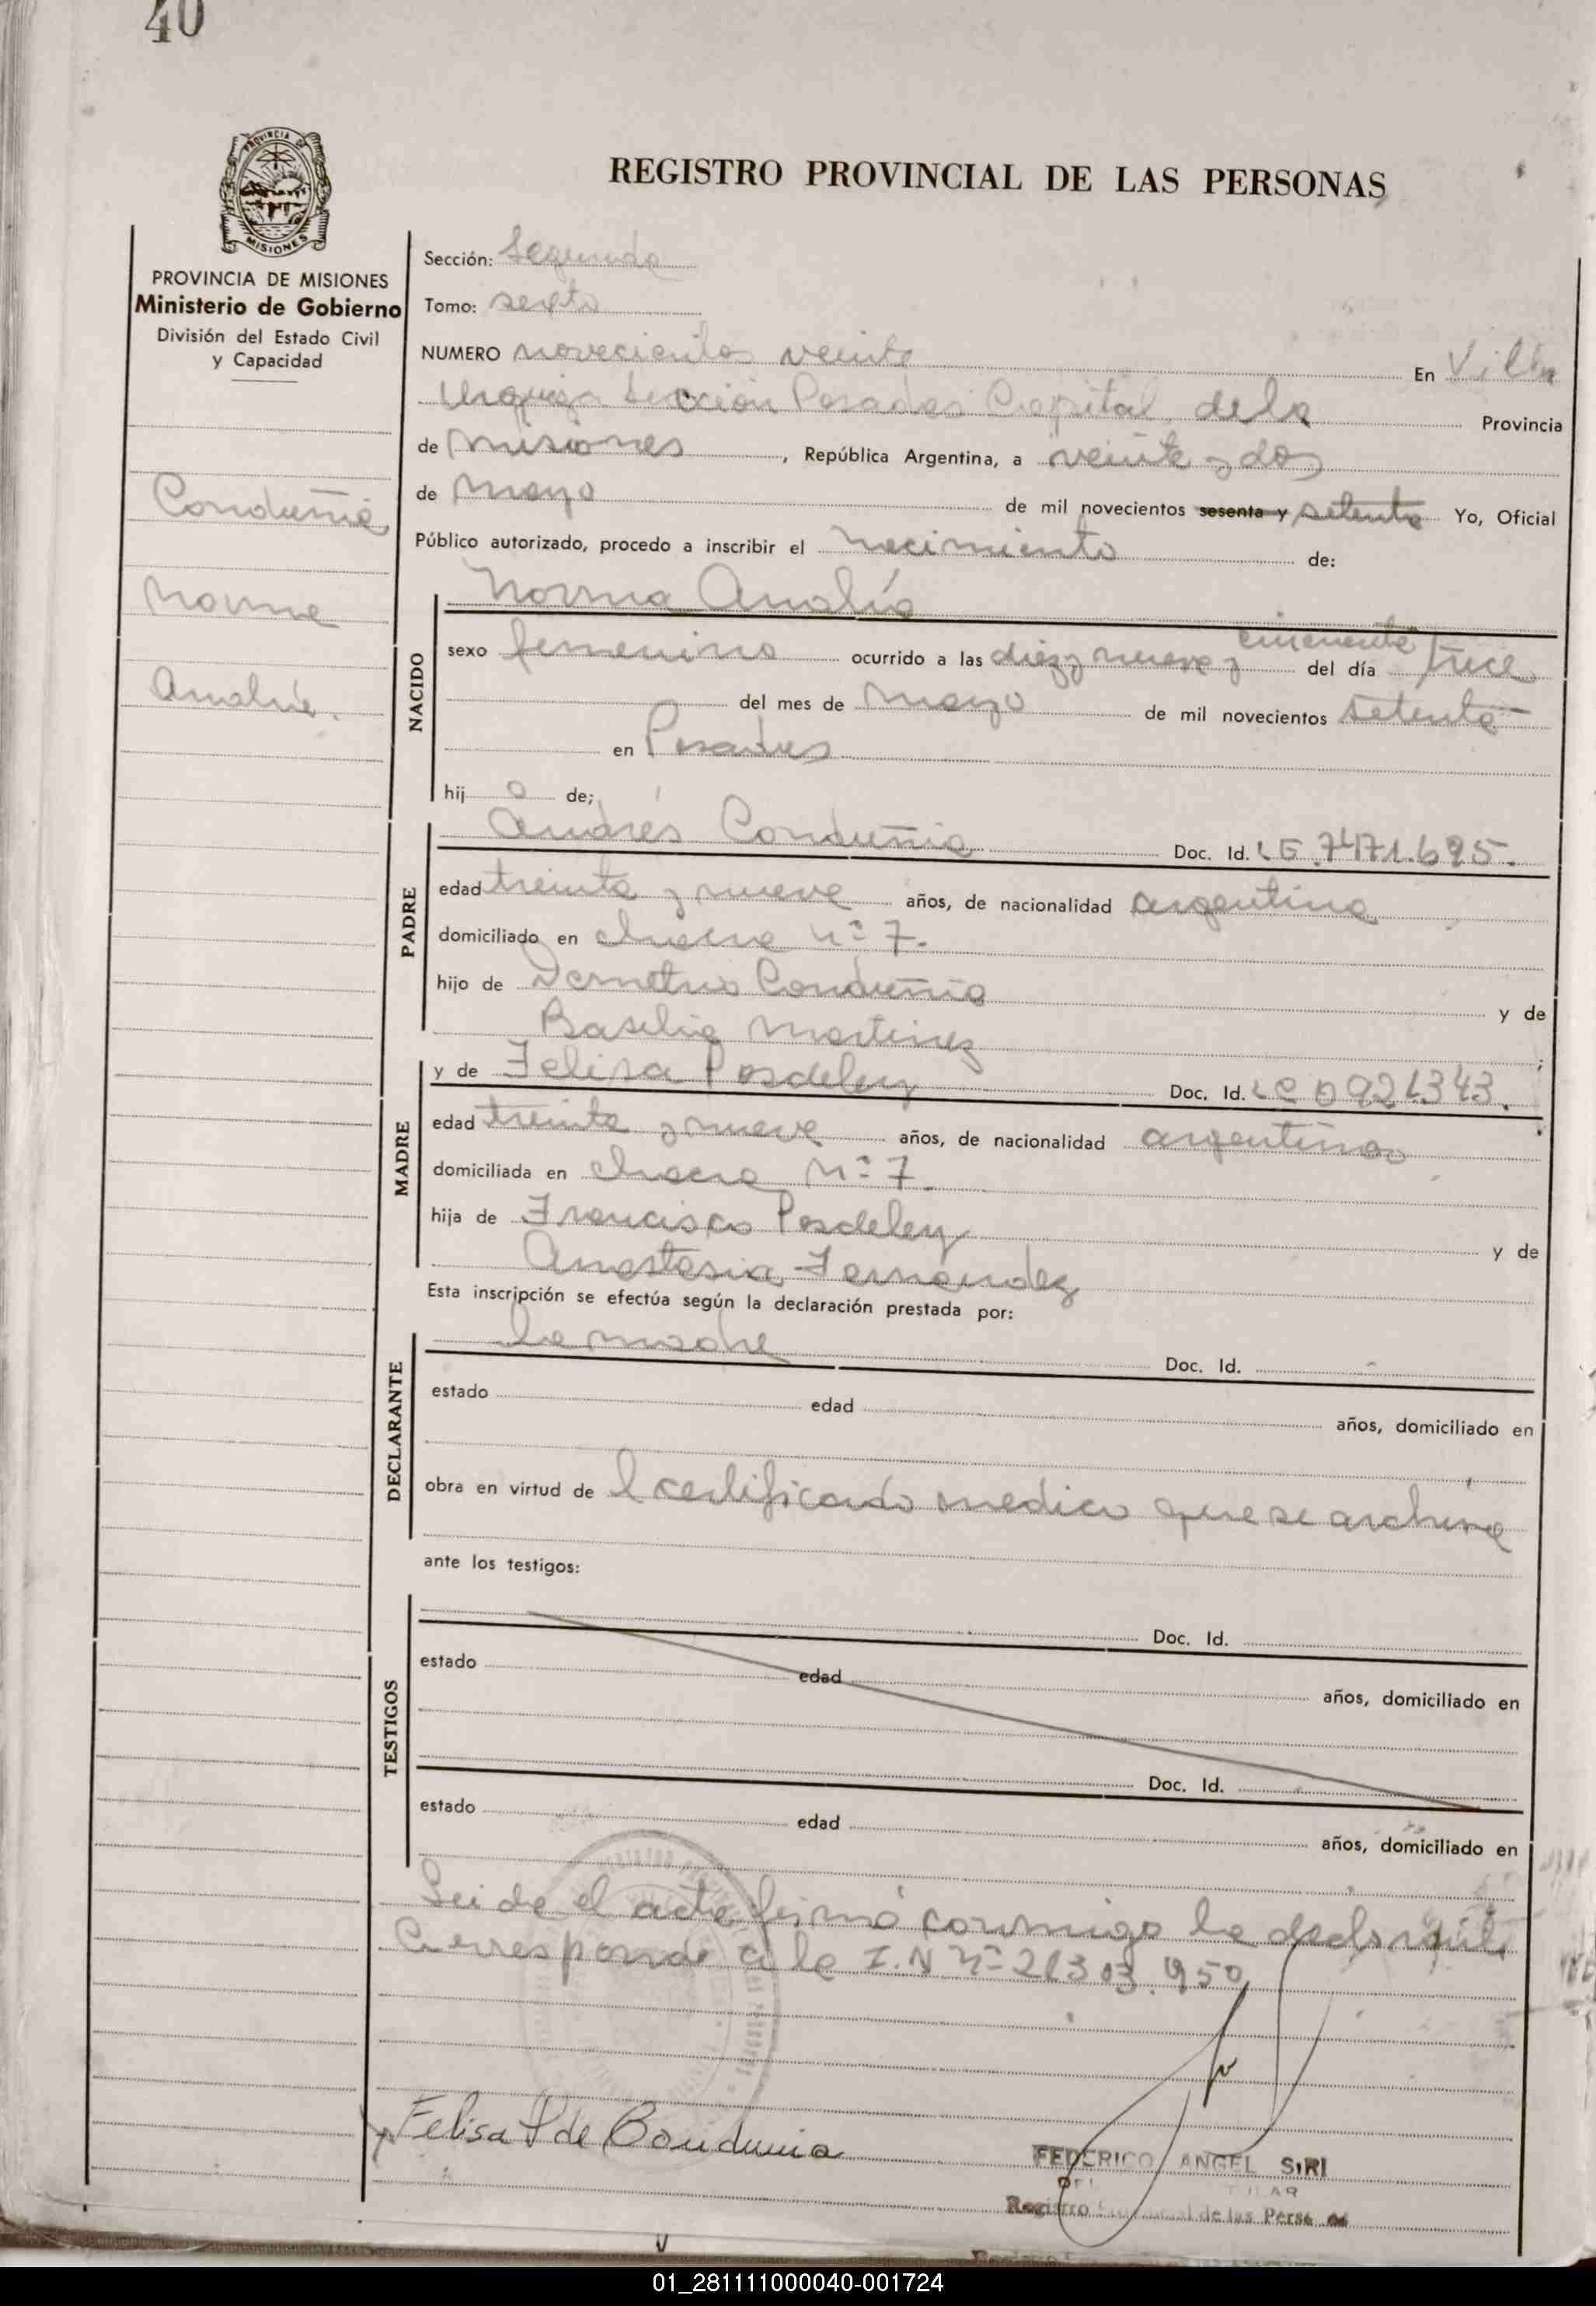 40
PROVINCIA DE
MISIONES
REGISTRO PROVINCIAL DE LAS PERSONAS
PROVINCIA DE MISIONES
Ministerio de Gobierno
División del Estado Civil
y Capacidad
Conduñia
Norma
Analía.
Sección: Segunda
Tomo: sexto
NUMERO novecientos veinte En Villa
Urquiza Sección Posadas Capital de la Provincia
de Misiones, República Argentina, a veinte y dos
de Mayo de mil novecientos sesenta y setenta Yo, Oficial
Público autorizado, procedo a inscribir el nacimiento de:
NACIDO
Norma Analía
cincuenta
sexo femenino ocurrido a las diez y nueve y del día trece
del mes de Mayo de mil novecientos setenta
en Posadas
hij a de;
PADRE
Andrés Conduñia Doc. Id. LE.7471.695.
edad treinta y nueve años, de nacionalidad argentina
domiciliado en chacra nº 7.
hijo de Demetrio Conduñia y de
Basilia Martinez
MADRE
y de Felisa Posdeley Doc. Id. LC 0921343.
edad treinta y nueve años, de nacionalidad argentina
domiciliada en chacra Nº 7.
hija de Francisco Posdeley y de
Anastasia Fernández
Esta inscripción se efectúa según la declaración prestada por:
DECLARANTE
la madre Doc. Id.
estado edad años, domiciliado en
obra en virtud de l certificado medico que se archiva
ante los testigos:
TESTIGOS
Doc. Id.
estado edad años, domiciliado en
Doc. Id.
estado edad años, domiciliado en
Leida el acta firmó conmigo la declarante
Corresponde a la I.N Nº 21303.950
Felisa P de Condunia
FEDERICO ANGEL SIRI
Registro Provincial de las Personas
01_281111000040-001724